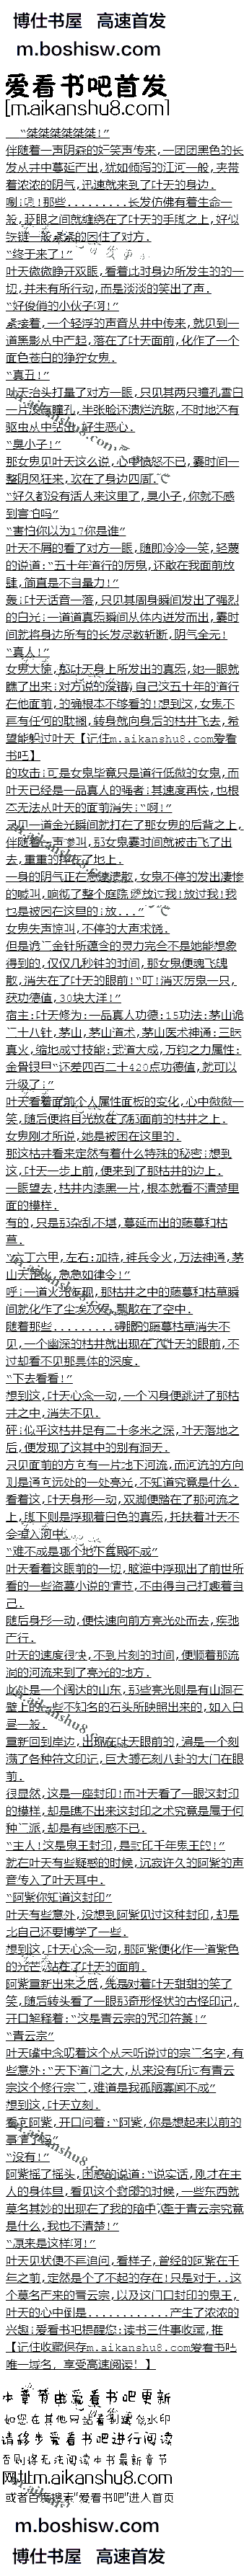 博仕书屋 高速首发
m.boshisw.com
爱看书吧首发
[m.aikanshu8.com]
“桀桀桀桀桀桀!”
伴随着一声阴森的奸笑声传来,一团团黑色的长
发从井中蔓延产出,犹如倾泻的江河一般,夹带
着浓浓的阴气,迅速就来到了叶天的身边.
唰!唰!那些.........长发仿佛有着生命一
般,眨眼之间就缠绕在了叶天的手腕之上,好似
铁链一般紧紧的困住了对方.
“终于来了!”
叶天微微睁开双眼,看着此时身边所发生的的一
切,并未有所行动,而是淡淡的笑出了声.
“好俊俏的小伙子啊!”
紧接着,一个轻浮的声音从井中传来,就见到一
道黑影从中产起,落在了叶天面前,化作了一个
面色苍白的狰狞女鬼.
“真丑!”
叶天抬头打量了对方一眼,只见其两只瞳孔雪白
一片没有瞳孔,半张脸还溃烂流脓,不时地还有
蛆虫从中钻出,好生恶心.
“臭小子!”
那女鬼见叶天这么说,心中愤怒不已,霎时间一
整阴风狂来,吹在了身边四周.
“好久都没有活人来这里了,臭小子,你就不感
到害怕吗”
“害怕你以为17你是谁”
叶天不屑的看了对方一眼,随即冷冷一笑,轻蔑
的说道:“五十年道行的厉鬼,还敢在我面前放
肆,简直是不自量力!”
轰!叶天话音一落,只见其周身瞬间发出了强烈
的白光!一道道真炁瞬间从体内迸发而出,霎时
间就将身边所有的长发尽数斩断,阴气全无!
“真人!”
女鬼大惊,那叶天身上所发出的真炁,她一眼就
瞧了出来!对方说的没错,自己这五十年的道行
在他面前,的确根本不够看的!想到这,女鬼不
再有任何的耽搁,转身就向身后的枯井飞去,希
望能躲过叶天【记住m.aikanshu8.com爱看
书吧】
的攻击!可是女鬼毕竟只是道行低微的女鬼,而
叶天已经是一品真人的强者!其速度再快,也根
本无法从叶天的面前消失!“啊!”
只见一道金光瞬间就打在了那女鬼的后背之上,
伴随着一声惨叫,那女鬼霎时间就被击飞了出
去,重重的撞在了地上.
一身的阴气正在急速溃散,女鬼不停的发出凄惨
的喊叫,响彻了整个庭院“放过我!放过我!我
也是被困在这里的!放...”
女鬼失声惊叫,不停的大声求饶.
但是诡门金针所蕴含的灵力完全不是她能想象
得到的,仅仅几秒钟的时间,那女鬼便魂飞魄
散,消失在了叶天的眼前!“叮!消灭厉鬼一只,
获功德值,30块大洋!”
宿主:叶天修为:一品真人功德:15功法:茅山诡
门十八针,茅山,茅山道术,茅山医术神通:三昧
真火,缩地成寸技能:武道大成,万钧之力属性:
金骨银目“还差四百二十420点功德值,就可以
升级了!”
叶天看着面前个人属性面板的变化,心中微微一
笑,随后便将目光放在了那面前的枯井之上.
女鬼刚才所说,她是被困在这里的.
那这枯井看来定然有着什么特殊的秘密!想到
这,叶天一步上前,便来到了那枯井的边上.
一眼望去,枯井内漆黑一片,根本就看不清楚里
面的模样.
有的,只是那杂乱不堪,蔓延而出的藤蔓和枯
草.
“六丁六甲,左右:加持,神兵令火,万法神通,茅
山天罡,急急如律令!”
呼!一道火光涌现,那枯井之中的藤蔓和枯草瞬
间就化作了尘埃灭烬,飘散在了空中.
随着那些.........碍眼的藤蔓枯草消失不
见,一个幽深的枯井就出现在了叶天的眼前,不
过却看不见那具体的深度.
“下去看看!”
想到这,叶天心念一动,一个闪身便跳进了那枯
井之中,消失不见.
砰!似乎这枯井足有二十多米之深,叶天落地之
后,便发现了这其中的别有洞天.
只见面前的方向有一片地下河流,而河流的方向
则是通向远处的一处亮光,不知道究竟是什么.
看着这,叶天身形一动,双脚便踏在了那河流之
上,脚下则是浮现着白色的真炁,托扶着叶天不
会陷入河中.
“难不成是哪个地下宫殿不成”
叶天看着这眼前的一切,脑海中浮现出了前世所
看的一些盗墓小说的情节,不由得自己打趣着自
己.
随后身形一动,便快速向前方亮光处而去,疾弛
产行.
叶天的速度很快,不到片刻的时间,便顺着那流
淌的河流来到了亮光的地方.
此处是一个阔大的山东,那些亮光则是有山洞石
壁上的一些不知名的石头所映照出来的,如入白
昼一般.
重新回到岸边,出现在叶天眼前的,渏是一个刻
满了各种符文印记,巨大整石刻八卦的大门在眼
前.
很显然,这是一座封印!而叶天看了一眼这封印
的模样,却是瞧不出来这封印之术究竟是属于何
种门派,却是有些困惑不已.
“主人!这是鬼王封印,是封印千年鬼王的!”
就在叶天有些疑惑的时候,沉寂许久的阿紫的声
音传入了叶天耳中.
“阿紫你知道这封印”
叶天有些意外,没想到阿紫见过这种封印,却是
比自己还要博学了一些.
想到这,叶天心念一动,那阿紫便化作一道紫色
的光芒,站在了叶天的面前.
阿紫重新出来之后,先是对着叶天甜甜的笑了
笑,随后转头看了一眼那奇形怪状的古怪印记,
开口解释着:“这是青云宗的咒印符箓!”
“青云宗”
叶天嘴中念叨着这个从未听说过的宗门名字,有
些意外:“天下道门之大,从来没有听过有青云
宗这个修行宗门,难道是我孤陋寡闻不成”
想到这,叶天立刻.
看向阿紫,开口问着:“阿紫,你是想起来以前的
事情了吗”
“没有!”
阿紫摇了摇头,困惑的说道:“说实话,刚才在主
人的身体里,看见这个封印的时候,一些东西就
莫名其妙的出现在了我的脑中,至于青云宗究竟
是什么,我也不清楚!”
“原来是这样啊!”
叶天见状便不再追问,看样子,曾经的阿紫在千
年之前,定然是个了不起的存在!只是对于..这
个莫名产来的青云宗,以及这门口封印的鬼王,
叶天的心中倒是............产生了浓浓的
兴趣!爱看书吧提醒您:读书三件事收藏,推
【记住收藏保存m.aikanshu8.com爱看书吧
唯一域名，享受高速阅读！】
本章节由爱看书吧更新
如您在其他网站看到这个水印
请移步爱看书吧进行阅读
否则将无法阅读本书最新章节
网址m.aikanshu8.com
或者百度搜索“爱看书吧”进入首页
m.boshisw.com
博仕书屋 高速首发